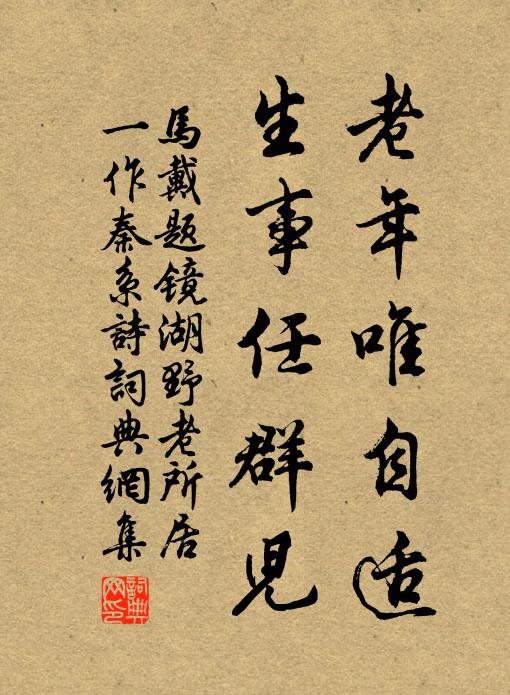 老年唯自适
生事任群兒
馬戴題鏡湖野老所居
一作秦系詩詞典網集
詞典网印